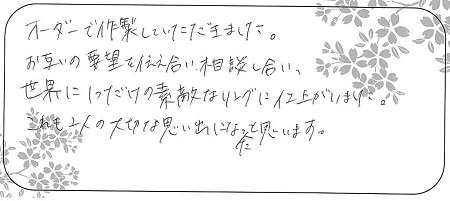 オーダーで作製していただきました。
お互いの要望を伝え合い、相談し合い、
世界に1つだけの素敵なリングに仕上がりました。
これも2人の大切な思い出になったと思います。